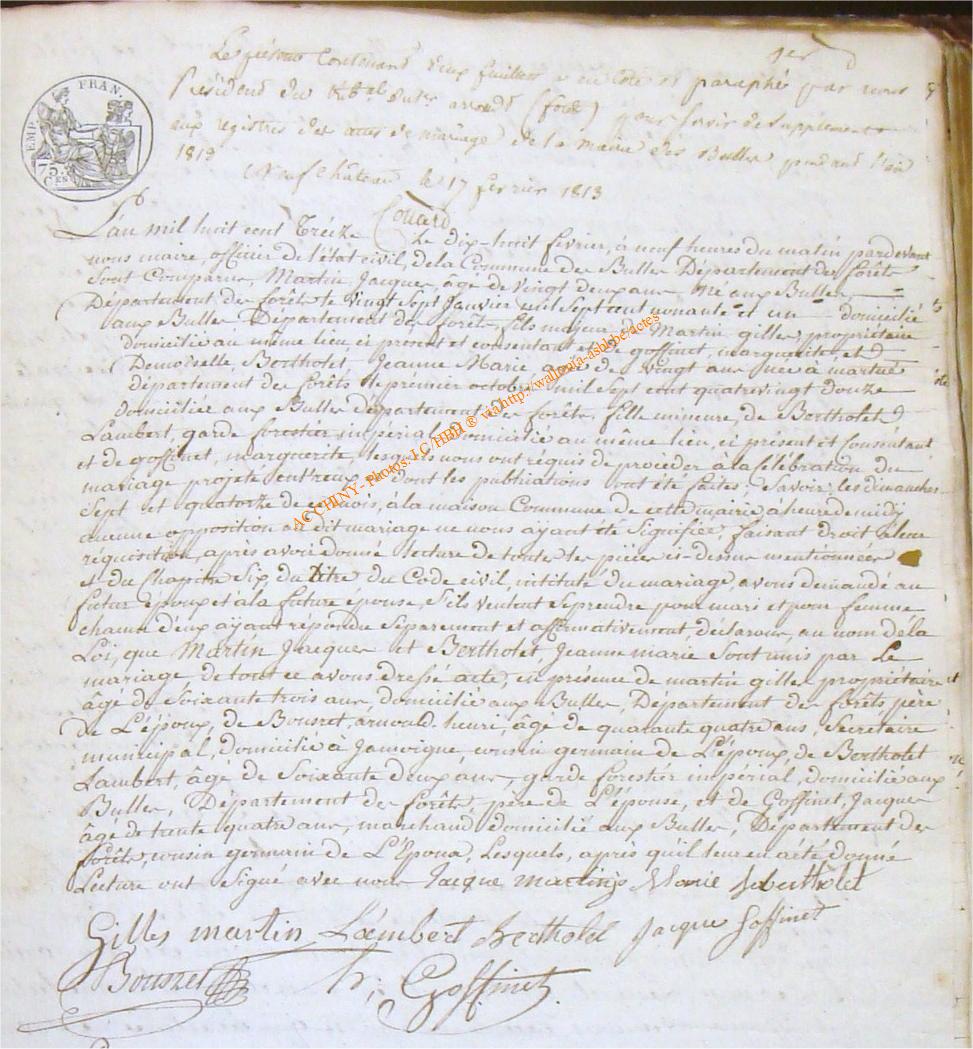 1er
Le présent Contenant deux feuillets a été Coté et paraphé par nous
Président du tribal du 1er arrondt (forêts) pour servir de Supplement
aux registres des actes de mariage de la mairie des Bulles pendant l'an
1813
Neufchâteau le 17 fevrier 1813
Couard
EMP. FRAN.
75.
CES
L'an mil huit cent Treize Le dix-huit février, à neuf heures du matin pardevant
nous maire, officier de l'état civil, de la Commune des Bulles Département des forêts
Sont Comparus, Martin Jacques, âgé de Vingt deux ans Né aux Bulles,
Département des forêts le Vingt Sept Janvier mil Sept cent nonante et un domicilié
aux Bulles Département des forêts, fils majeur de Martin gilles, propriétaire
domicilié au même lieu ci présent et consentant et de goffinet, marguerite, et
Demoiselle, Bertholet, Jeanne Marie, âgée de Vingt ans Née a martué
département des forêts le premier octobre mil Sept cent quatrevingt douze
domiciliée aux Bulles département des forêts, fille mineure, de Bertholet
Lambert, garde forestier impérial, domicilié au même lieu, ci présent et Consentant
et de goffinet, marguerite, lesquels nous ont réquis de procéder à la célébration du
mariage projeté entr'eux, et dont les publications ont été faites, Savoir: les dimanches
Sept et quatorze de ce mois, à la maison Commune de cette mairie à heure de midy
aucune opposition au dit mariage ne nous ayant été Signifiée, faisant droit à leur
réquisition, après avoir donné lecture de toutes les pièces ci-dessus mentionnées
et du Chapitre Six, du titre du Code civil, intitulé du mariage, avons demandé au
futur époux et à la future épouse, S'ils veulent Se prendre pour mari et pour femme
chacun d'eux ayant répondu Séparement et affirmativement, déclarons, au nom de la
Loi, que Martin Jacques et Bertholet, Jeanne marie Sont unis par Le
mariage de tout ce avons dressé acte, en présence de martin gilles propriétaire
âgé de Soixante trois ans, domicilié aux Bulles, Département des forêts, père
de L'époux, de Bousret, arnould henri, âgé de quarante quatre ans, Secretaire
municipal, domicilié à Jamoigne cousin germain de L'époux, de Bertholet
Lambert, âgé de Soixante deux ans, garde forestier impérial, domicilié aux
Bulles, Département des forêts, père de L'épouse, et de Goffinet, Jacques
âgé de trente quatre ans, marchand domicilié aux Bulles, Département des
forêts, cousin germain de L'Epoux, Lesquels, après qu'il leur en a été donné
Lecture ont Signé avec nous Jacque martin Marie J bertholet
Gilles martin Lambert Bertholet Jacque Goffinet
Bousret h, Goffinet
AC CHINY - Photos J.C/HBH ® via http://wallonia-asbl.be/actes